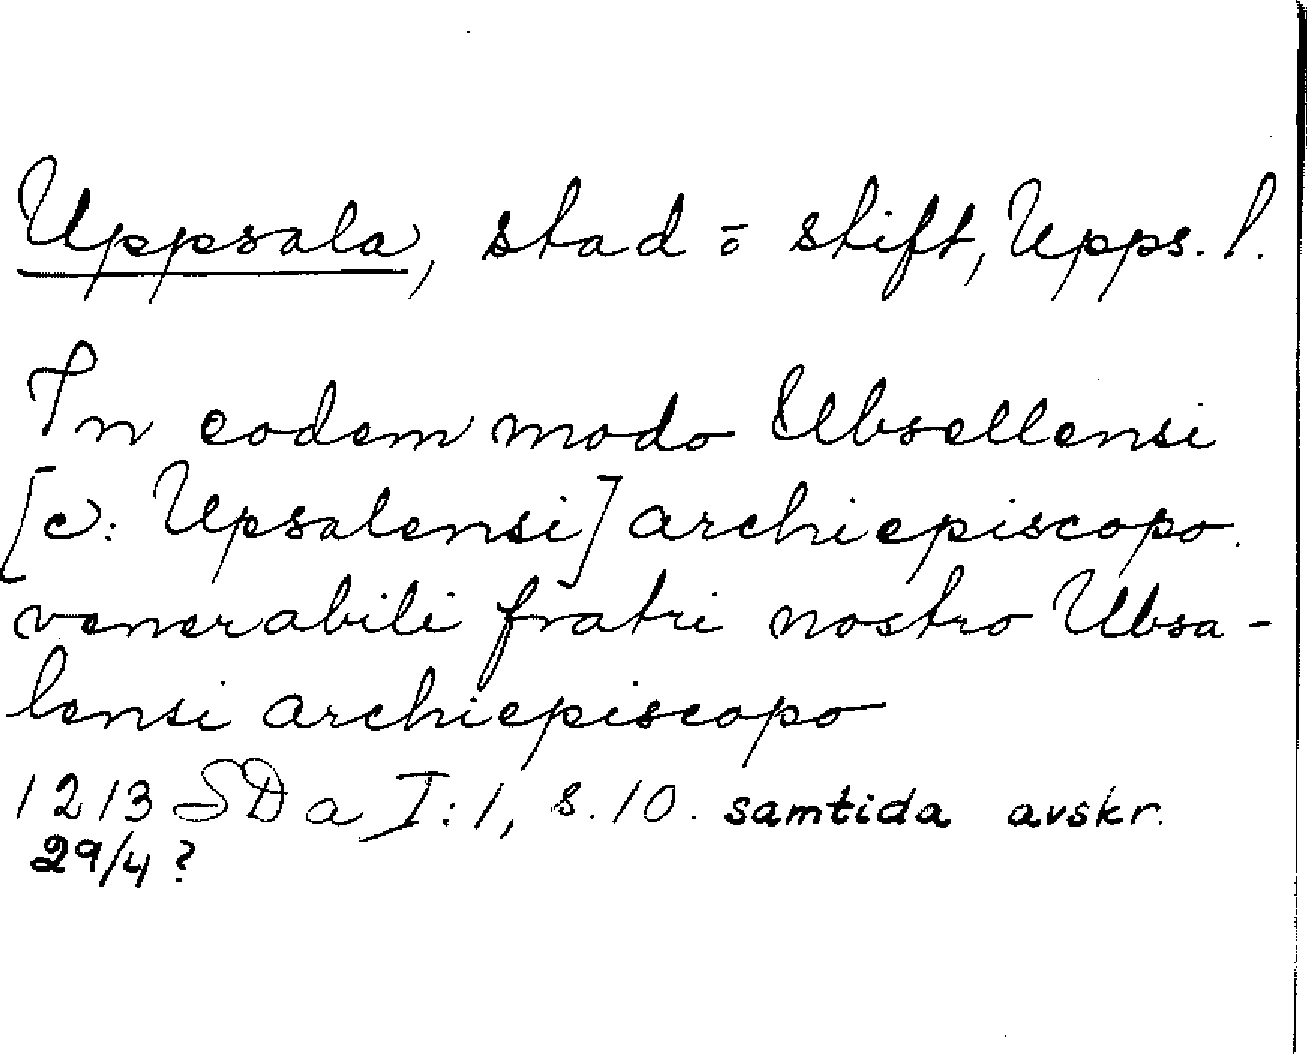 Uppsala, stad o stift, Upps. l.
In eodem modo Ubsellensi
[c: Upsalensi] archiepiscopo.
venerabili fratri nostro Ubsa-
lensi archiepiscopo
1213 SDa I:1, s. 10. samtida avskr.
29/4 ?